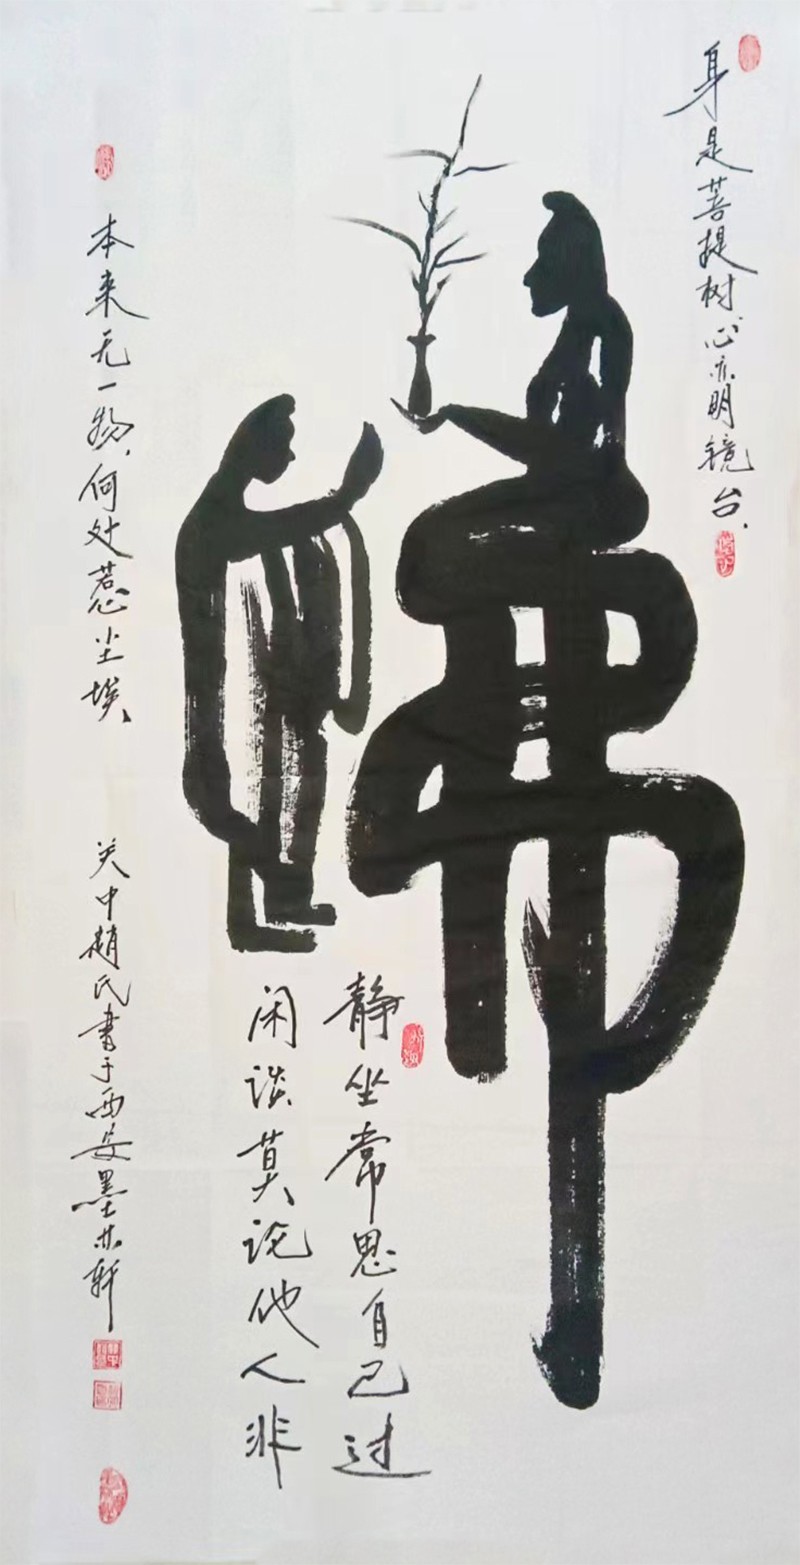 身是菩提树心亦明镜台
佛
静坐常思自己过
闲谈莫论他人非
本来无一物,何处惹尘埃
关中趙氏書于西安墨亦轩